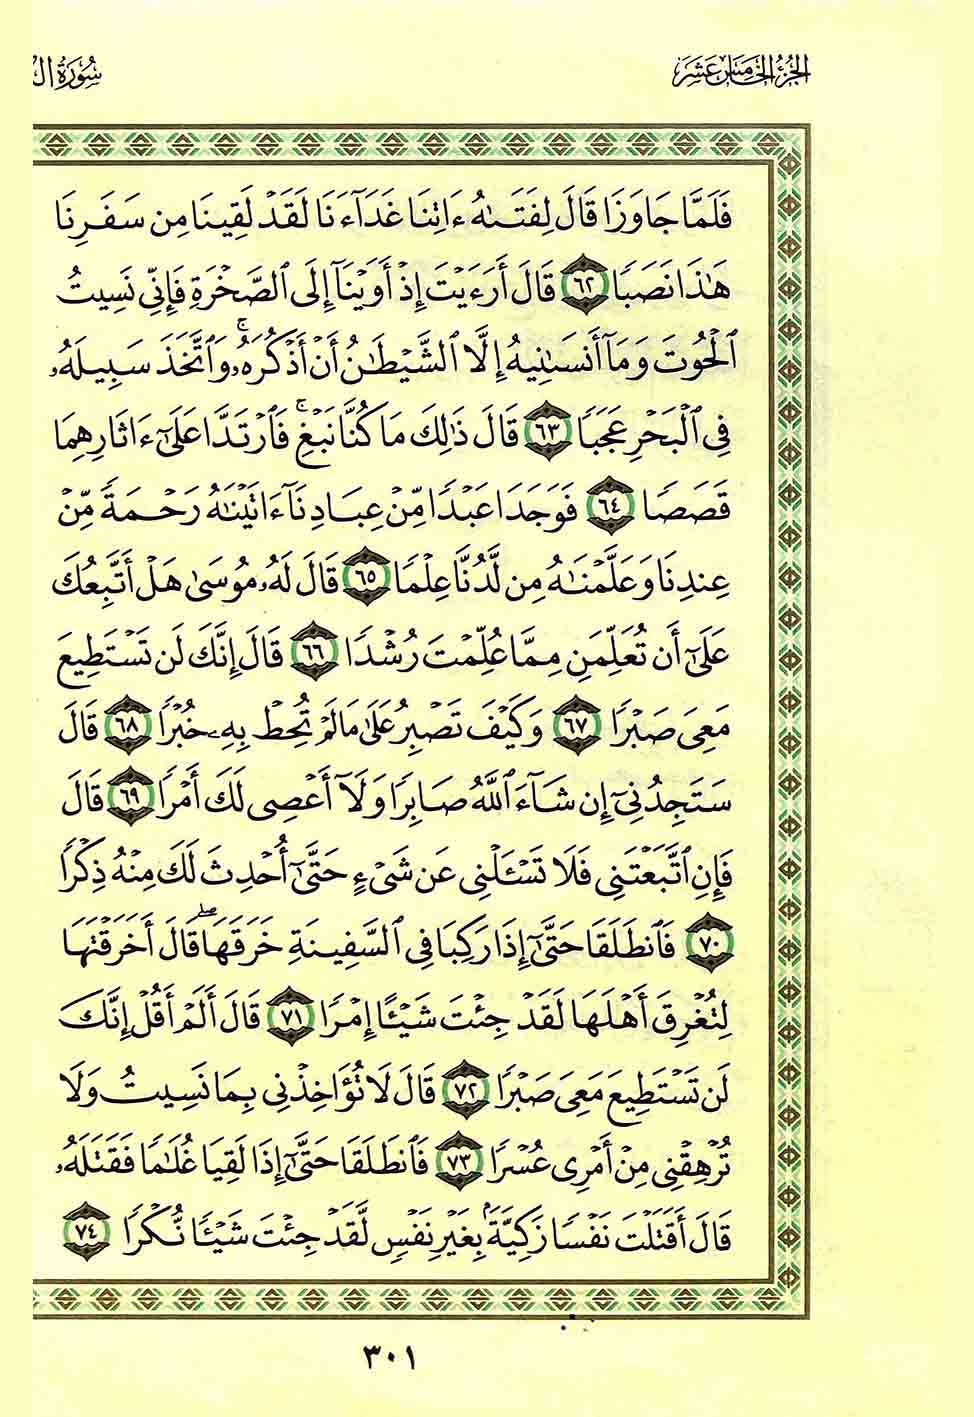 الجزء الخامس عشر
سورة ال
فَلَمَّا جَاوَزَا قَالَ لِفَتَىٰهُ ءَاتِنَا غَدَآءَنَا لَقَدْ لَقِينَا مِن سَفَرِنَا
هَٰذَا نَصَبًا ٦٢ قَالَ أَرَءَيْتَ إِذْ أَوَيْنَآ إِلَى ٱلصَّخْرَةِ فَإِنِّى نَسِيتُ
ٱلْحُوتَ وَمَآ أَنسَىٰنِيهُ إِلَّا ٱلشَّيْطَٰنُ أَنْ أَذْكُرَهُۥ ۚ وَٱتَّخَذَ سَبِيلَهُۥ
فِى ٱلْبَحْرِ عَجَبًا ٦٣ قَالَ ذَٰلِكَ مَا كُنَّا نَبْغِ ۚ فَٱرْتَدَّا عَلَىٰٓ ءَاثَارِهِمَا
قَصَصًا ٦٤ فَوَجَدَا عَبْدًا مِّنْ عِبَادِنَآ ءَاتَيْنَٰهُ رَحْمَةً مِّنْ
عِندِنَا وَعَلَّمْنَٰهُ مِن لَّدُنَّا عِلْمًا ٦٥ قَالَ لَهُۥ مُوسَىٰ هَلْ أَتَّبِعُكَ
عَلَىٰٓ أَن تُعَلِّمَنِ مِمَّا عُلِّمْتَ رُشْدًا ٦٦ قَالَ إِنَّكَ لَن تَسْتَطِيعَ
مَعِىَ صَبْرًا ٦٧ وَكَيْفَ تَصْبِرُ عَلَىٰ مَا لَمْ تُحِطْ بِهِۦ خُبْرًا ٦٨ قَالَ
سَتَجِدُنِىٓ إِن شَآءَ ٱللَّهُ صَابِرًا وَلَآ أَعْصِى لَكَ أَمْرًا ٦٩ قَالَ
فَإِنِ ٱتَّبَعْتَنِى فَلَا تَسْـَٔلْنِى عَن شَىْءٍ حَتَّىٰٓ أُحْدِثَ لَكَ مِنْهُ ذِكْرًا
٧٠ فَٱنطَلَقَا حَتَّىٰٓ إِذَا رَكِبَا فِى ٱلسَّفِينَةِ خَرَقَهَا ۖ قَالَ أَخَرَقْتَهَا
لِتُغْرِقَ أَهْلَهَا لَقَدْ جِئْتَ شَيْـًٔا إِمْرًا ٧١ قَالَ أَلَمْ أَقُلْ إِنَّكَ
لَن تَسْتَطِيعَ مَعِىَ صَبْرًا ٧٢ قَالَ لَا تُؤَاخِذْنِى بِمَا نَسِيتُ وَلَا
تُرْهِقْنِى مِنْ أَمْرِى عُسْرًا ٧٣ فَٱنطَلَقَا حَتَّىٰٓ إِذَا لَقِيَا غُلَٰمًا فَقَتَلَهُۥ
قَالَ أَقَتَلْتَ نَفْسًا زَكِيَّةًۢ بِغَيْرِ نَفْسٍ لَّقَدْ جِئْتَ شَيْـًٔا نُّكْرًا ٧٤
٣٠١